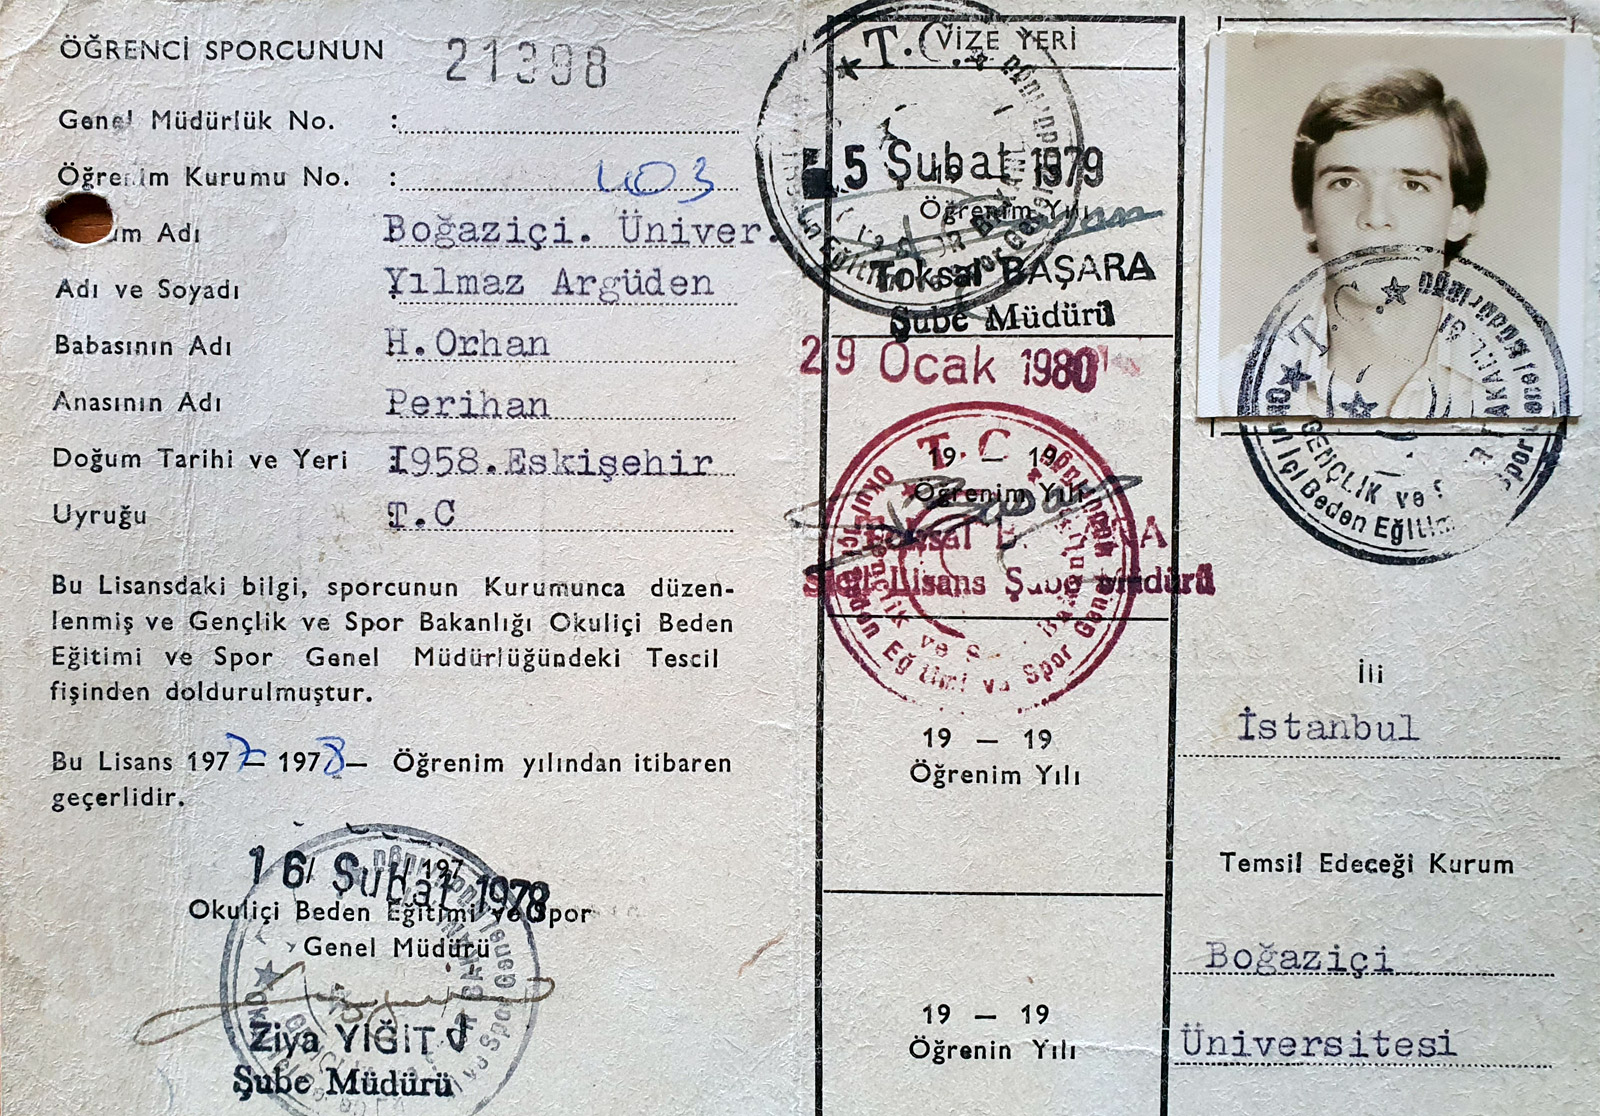 ÖĞRENCİ SPORCUNUN
21398
Genel Müdürlük No. :
Öğrenim Kurumu No. : 403
Adı Boğaziçi. Üniver.
Adı ve Soyadı Yılmaz Argüden
Babasının Adı H.Orhan
Anasının Adı Perihan
Doğum Tarihi ve Yeri 1958.Eskişehir
Uyruğu T.C
Bu Lisansdaki bilgi, sporcunun Kurumunca düzen-
lenmiş ve Gençlik ve Spor Bakanlığı Okuliçi Beden
Eğitimi ve Spor Genel Müdürlüğündeki Tescil
fişinden doldurulmuştur.
Bu Lisans 1977 — 1978 — Öğrenim yılından itibaren
geçerlidir.
16 Şubat 1978
Okuliçi Beden Eğitimi ve Spor
Genel Müdürü
Ziya YİĞİT
Şube Müdürü
VİZE YERİ
T.C.
5 Şubat 1979
Öğrenim Yılı
Toksal BAŞARA
Şube Müdürü
29 Ocak 1980
T.C
19 — 19
Öğrenim Yılı
Sicil Lisans Şube Müdürü
19 — 19
Öğrenim Yılı
19 — 19
Öğrenin Yılı
T.C.
GENÇLİK ve
Beden Eğitim
İli
İstanbul
Temsil Edeceği Kurum
Boğaziçi
Üniversitesi